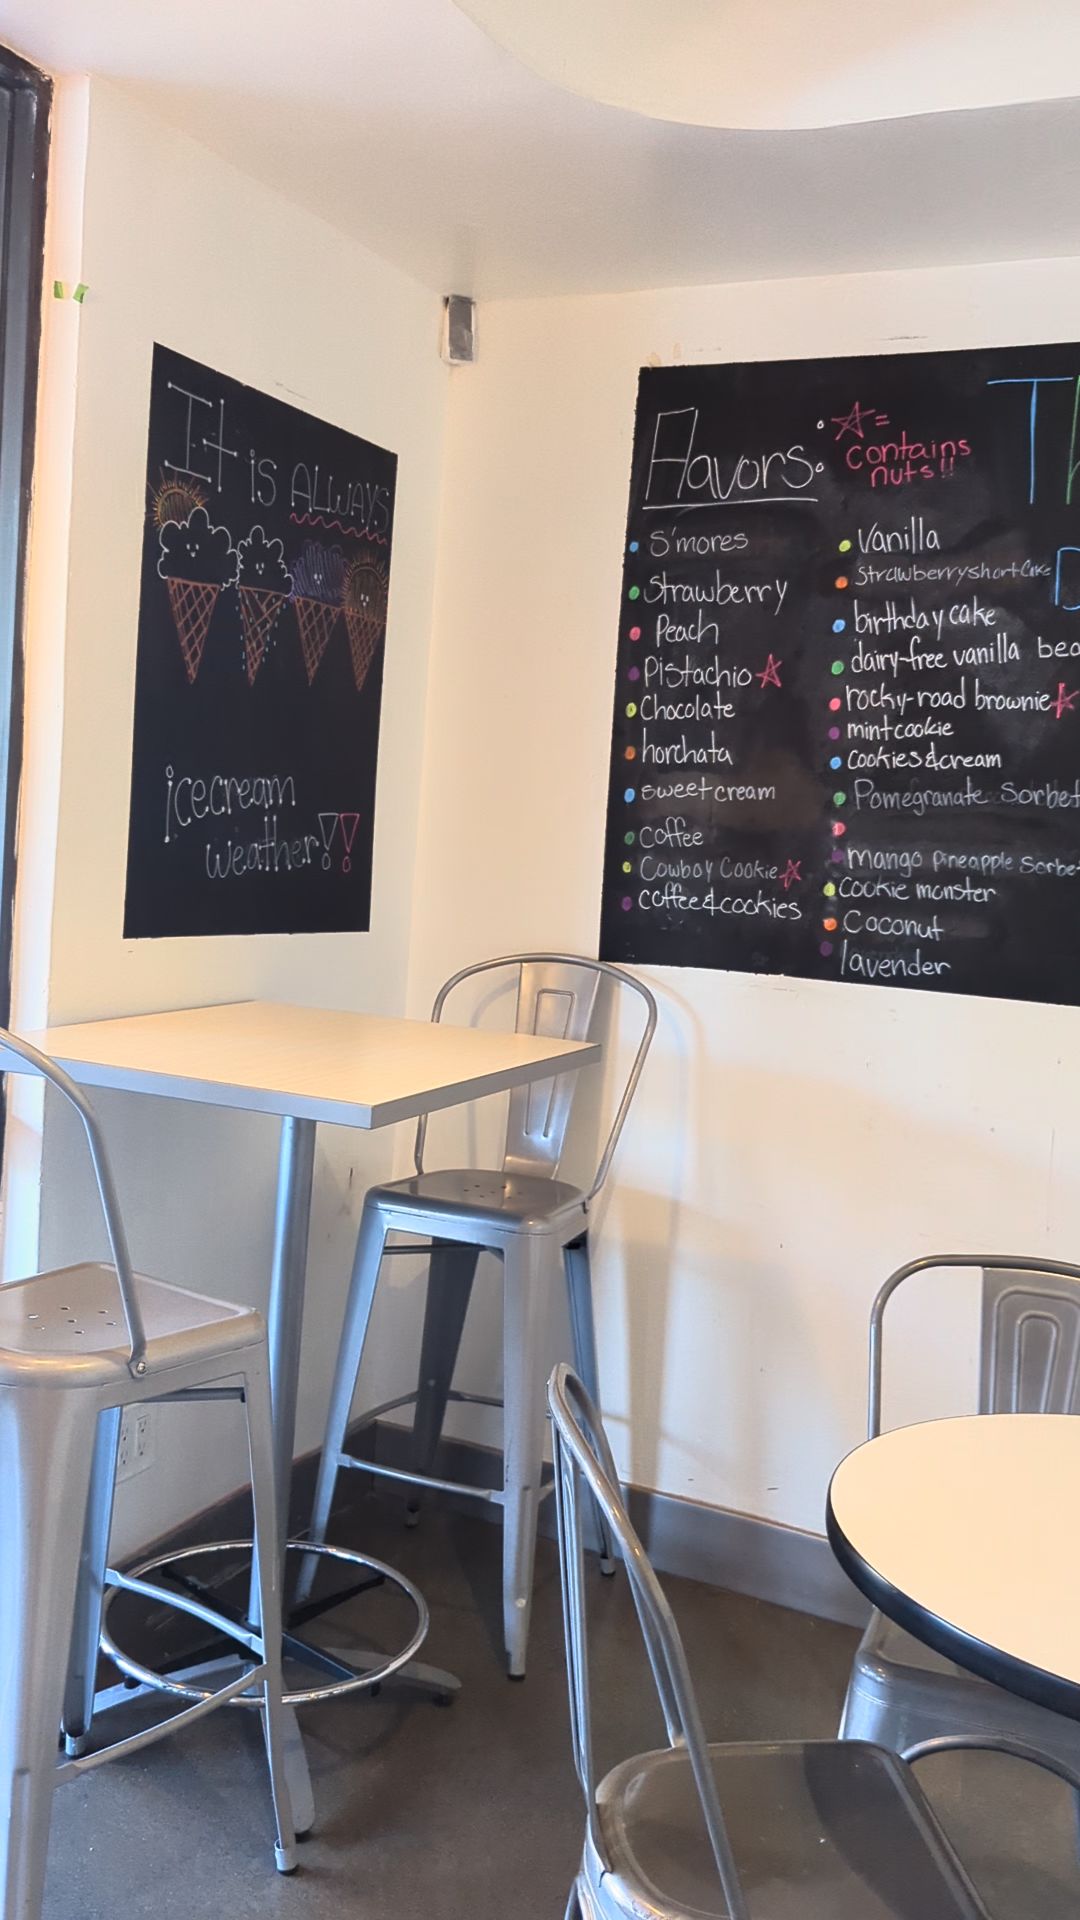 It is ALWAYS
icecream
weather!!
Flavors:
☆=
contains
nuts!!
S'mores
Strawberry
Peach
Pistachio☆
Chocolate
horchata
sweet cream
coffee
Cowboy Cookie☆
coffee&cookies
Vanilla
Strawberry shortcake
birthday cake
dairy-free vanilla bea
rocky-road brownie☆
mint cookie
cookies&cream
Pomegranate Sorbet
mango pineapple Sorbet
Cookie monster
Coconut
lavender
T
D